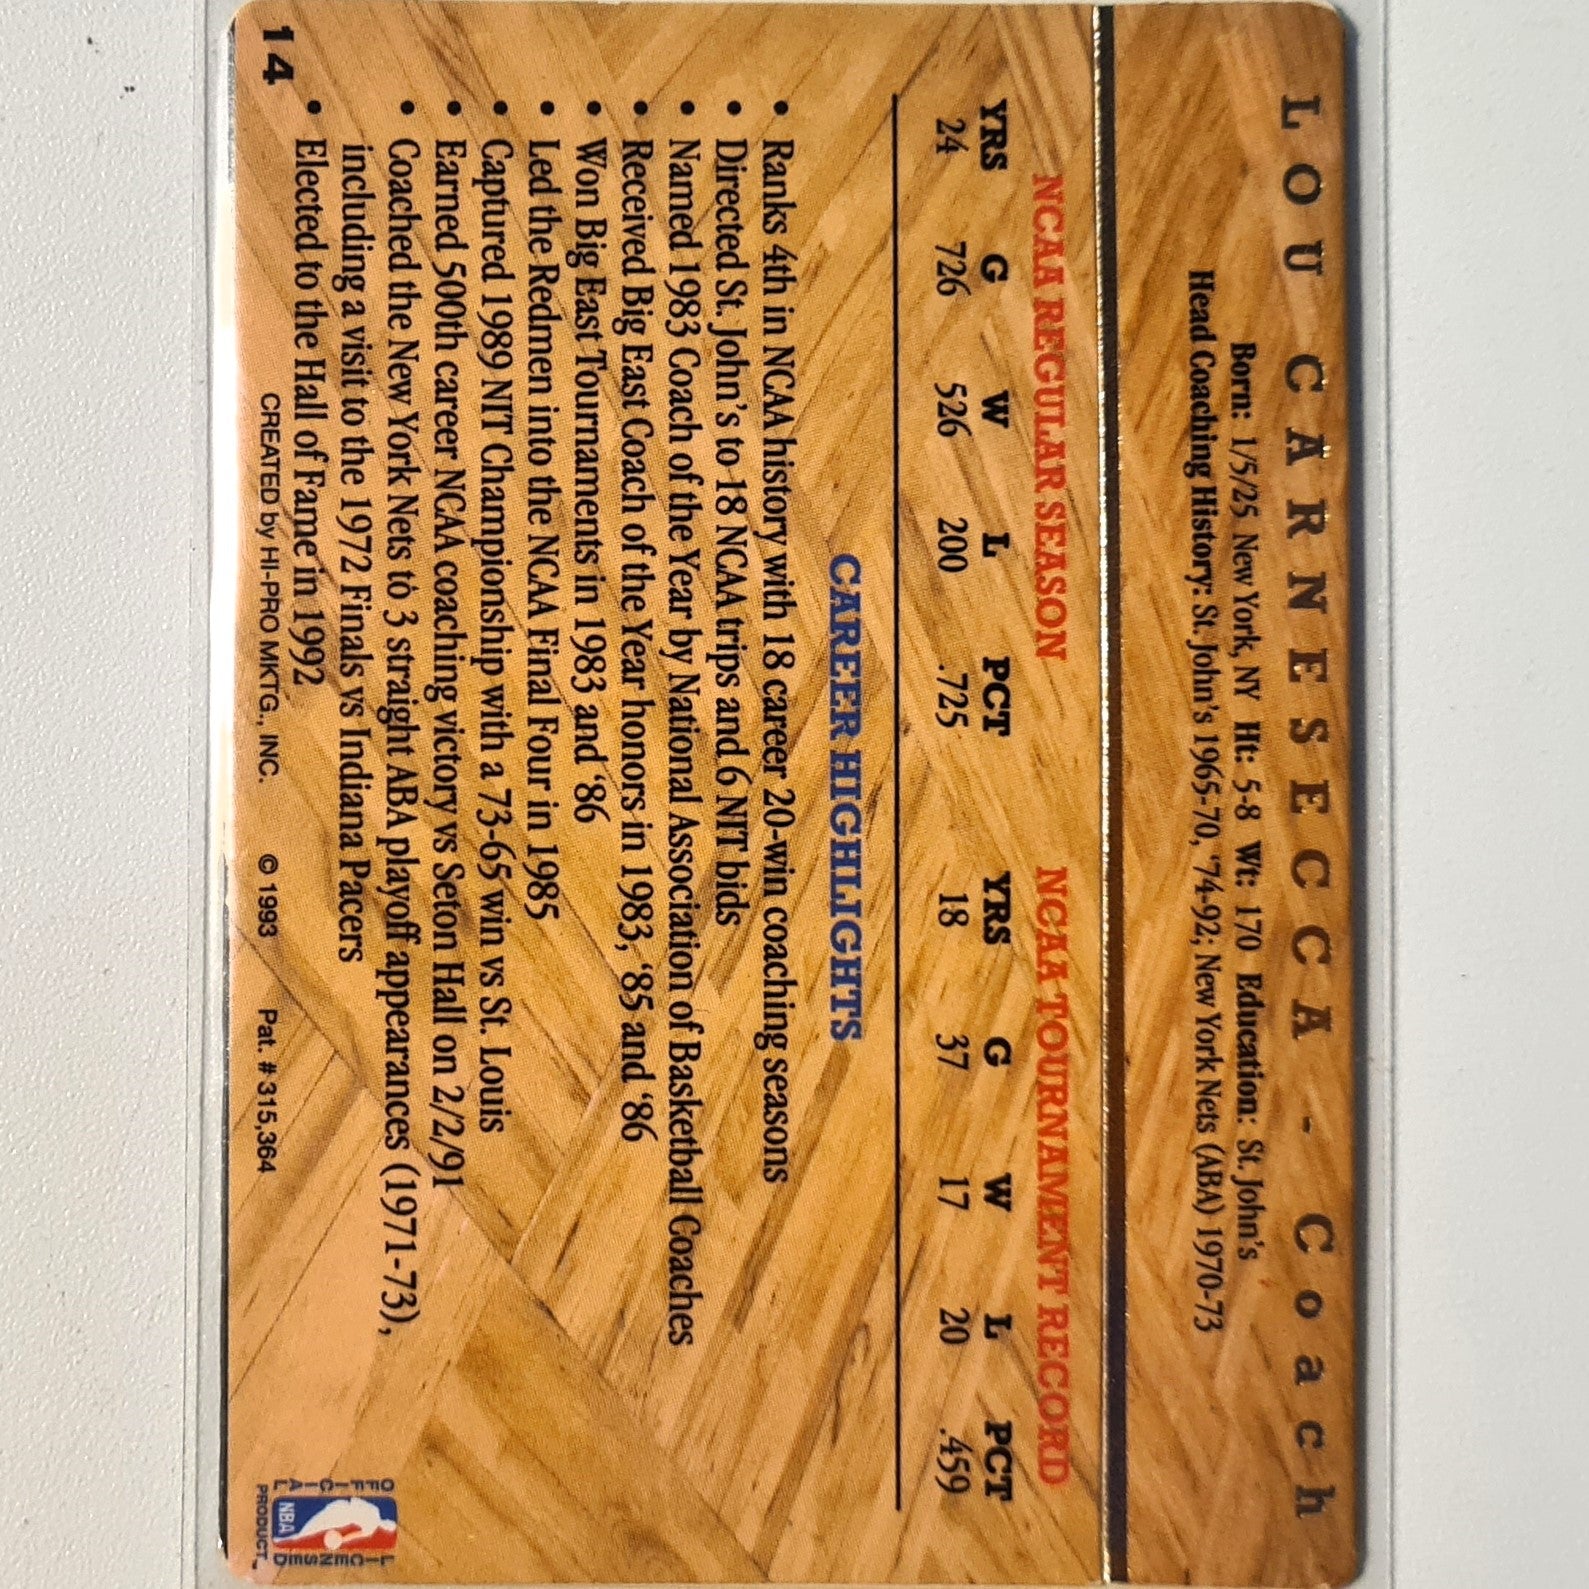 LOU CARNESECCA - Coach
Born: 1/5/25 New York, NY Ht: 5-8 Wt: 170 Education: St. John's
Head Coaching History: St. John's 1965-70, '74-92; New York Nets (ABA) 1970-73
NCAA REGULAR SEASON NCAA TOURNAMENT RECORD
YRS G W L PCT YRS G W L PCT
24 726 526 200 .725 18 37 17 20 .459
CAREER HIGHLIGHTS
• Ranks 4th in NCAA history with 18 career 20-win coaching seasons
• Directed St. John's to 18 NCAA trips and 6 NIT bids
• Named 1983 Coach of the Year by National Association of Basketball Coaches
• Received Big East Coach of the Year honors in 1983, '85 and '86
• Won Big East Tournaments in 1983 and '86
• Led the Redmen into the NCAA Final Four in 1985
• Captured 1989 NIT Championship with a 73-65 win vs St. Louis
• Earned 500th career NCAA coaching victory vs Seton Hall on 2/2/91
• Coached the New York Nets to 3 straight ABA playoff appearances (1971-73),
including a visit to the 1972 Finals vs Indiana Pacers
• Elected to the Hall of Fame in 1992
14 CREATED by HI-PRO MKTG., INC. © 1993 Pat. # 315,364
OFFICIAL NBA LICENSED
PRODUCT™